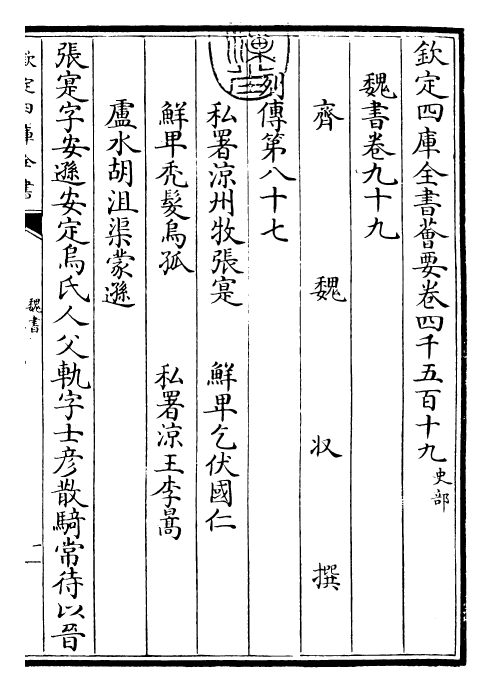 欽定四庫全書薈要卷四千五百十九史部
魏書卷九十九
齊魏收撰
列傳第八十七
私署涼州牧張寔 鮮卑乞伏國仁
鮮卑禿髮烏孤 私署涼王李暠
盧水胡沮渠蒙遜
張寔字安遜安定烏氏人父軌字士彦散騎常待以晉
欽定四庫全書
魏書